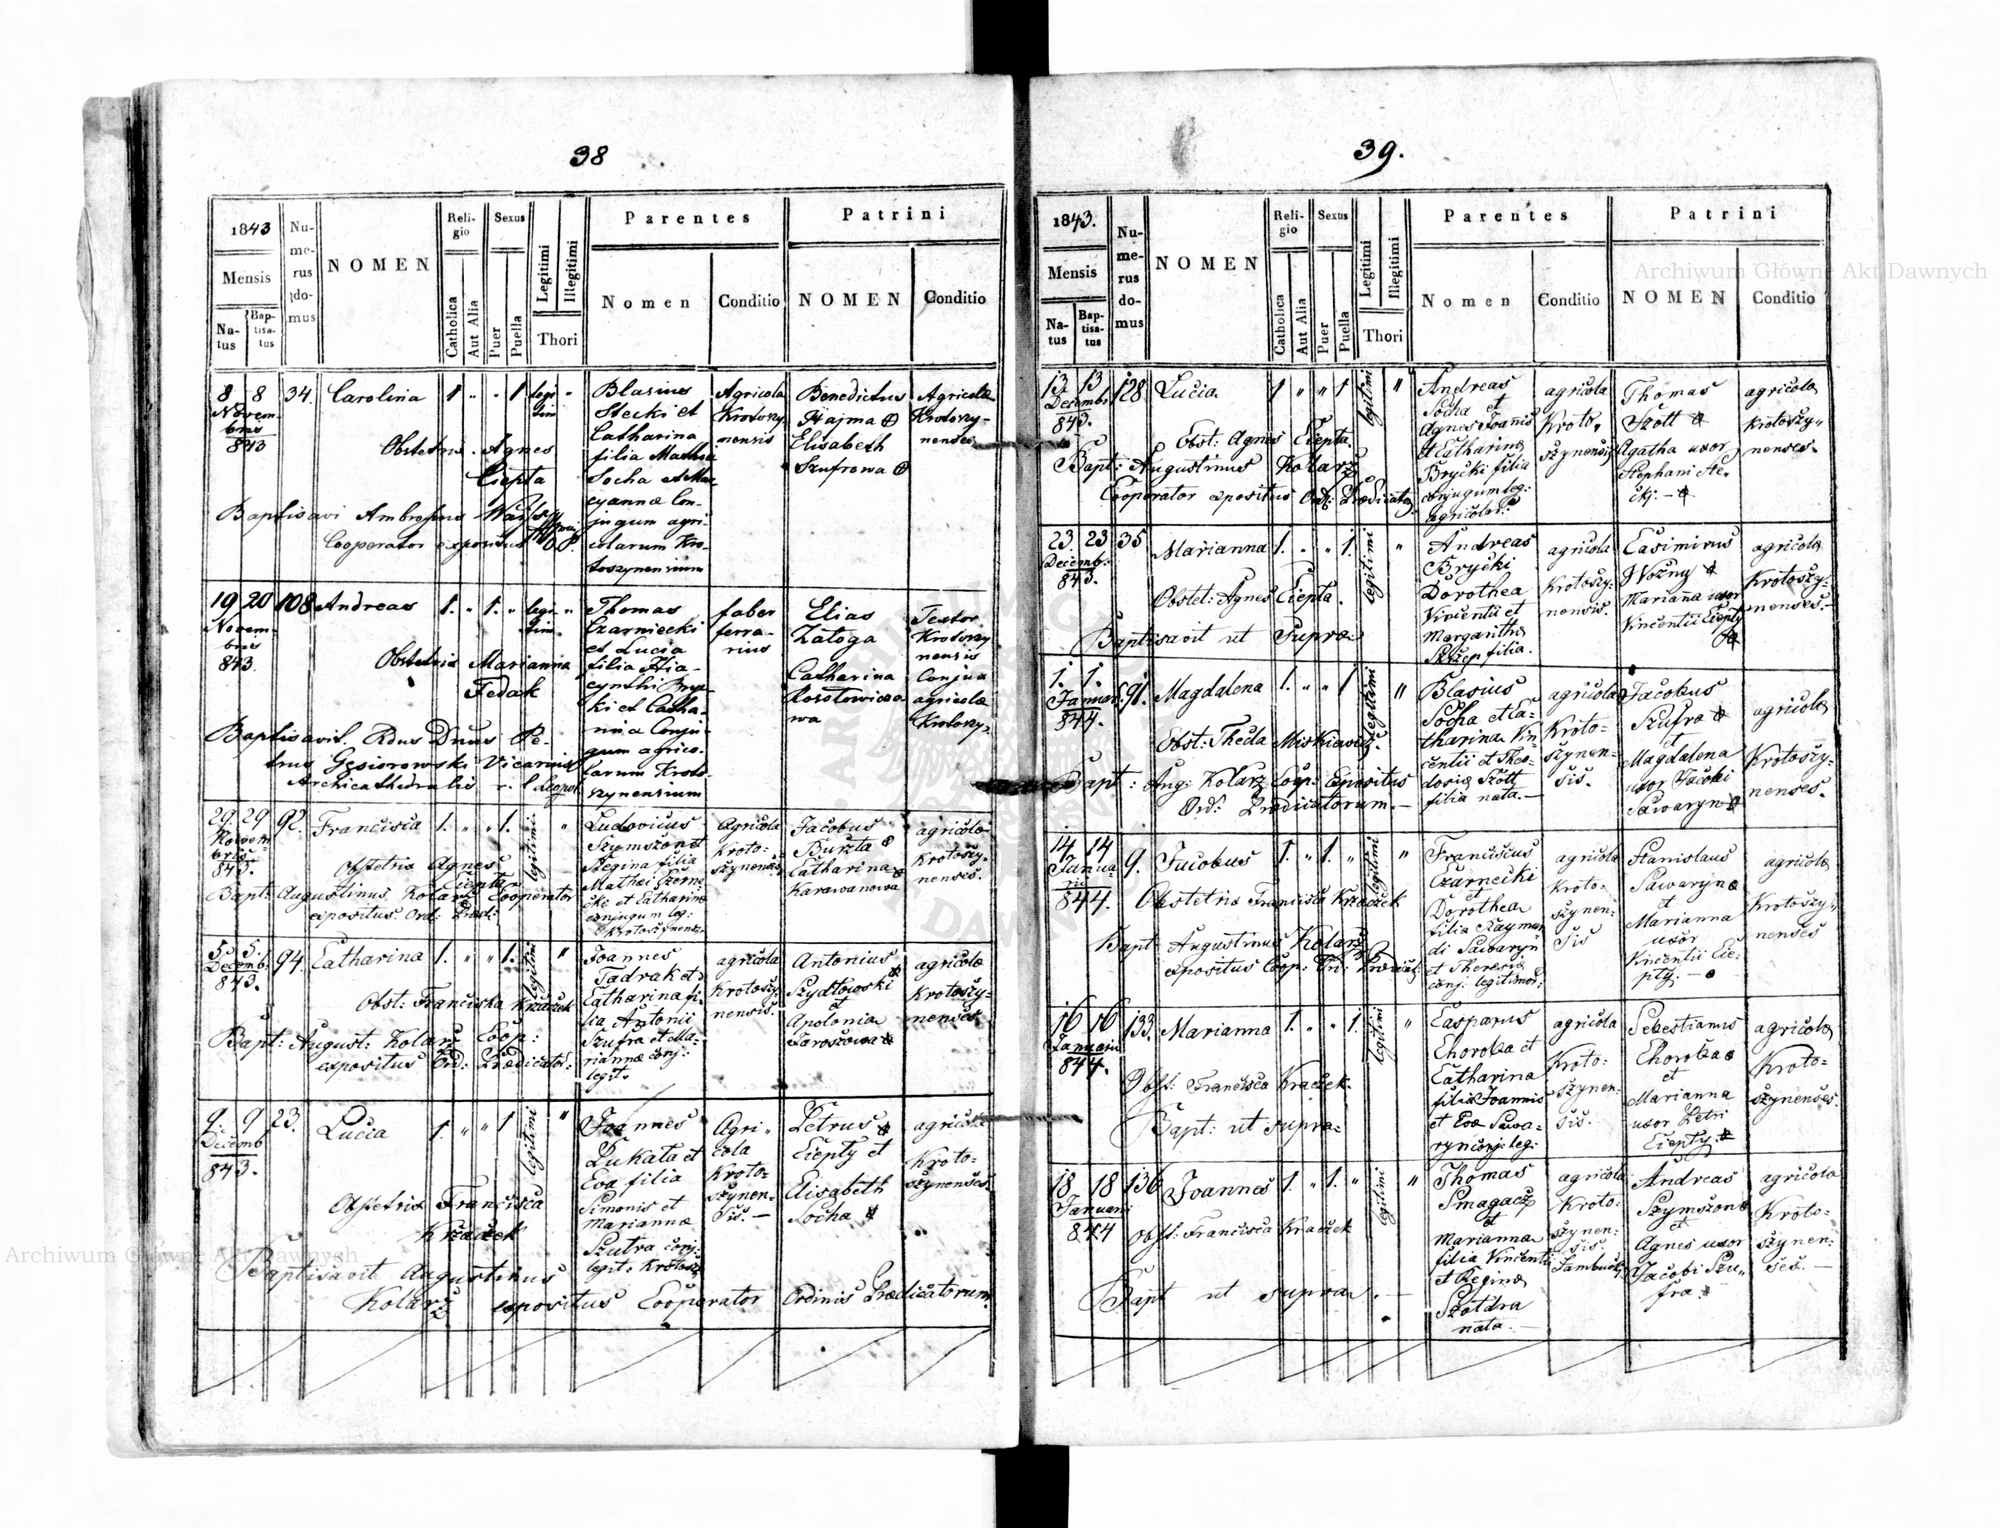 38
1843
Mensis
Na-
tus
Bap-
tisa-
tus
Nu-
me-
rus
do-
mus
NOMEN
Reli-
gio
Catholica
Aut Alia
Sexus
Puer
Puella
Legitimi
Illegitimi
Thori
Parentes
Nomen
Conditio
Patrini
NOMEN
Conditio
8 8 34. Carolina 1 " " 1 legi "
tim
Novem
bris
843
Obstetrix Agnes
Ciepta
Baptisavi Ambrosius
Cooperator expositus
Blasius
Stecki et
Catharina
filia Mathia
Socha et Ma
cyannæ Con-
jugum agri-
colarum Kro-
toszynensium
Agricola
Krotoszy
nensis
Benedictus
Hajma
Elisabeth
Szufrowa
Agricolæ
Krotoszy-
nenses
19 20 108 Andreas 1. " 1. " legi "
tim.
Novem-
bris
843.
Obstetrix Marianna
Fedak
Baptisavit. Rdus Dnus Pe-
trus Gąsiorowski Vicarius
Archicathedralis r. l. Leopol.
Thomas
Czarniecki
et Lucia
filia Hia-
cynthi Bryc-
ki et Catha-
rina Conju-
gum agrico-
larum Kroto-
szynensium
faber
ferra-
rius
Elias
Załoga
Catharina
wa
Textor
Krotoszy
nensis
Conjux
agricolæ
Krotoszy-
29. 29 92. Francisca 1. " " 1. legitimi "
Novem-
bris
843.
Obstetrix Agnes
Ciepta
Bapt: Augustinus Kolarz Cooperator
expositus Ord: Præd:
Ludovicus
Szymszon et
Regina filia
Mathæi
et Catharinæ
conjugum leg:
Krotoszynens:
Agricola
Kroto-
szynensis
Jacobus
Burzta
Catharina
Karawanowa
agricolæ
Krotoszy-
nenses.
5. 5. 94. Catharina 1. " " 1. legitimi "
Decemb.
843.
Obst: Franciska Krzaczek
Bapt: August: Kolarz Coop:
expositus Ord: Prædicator:
Joannes
Fadrak et
Catharina fi-
lia Antonii
Szufra et Ma-
riannæ conj:
legit.
agricola
Krotoszy
nensis.
Antonius
Szydłowski
et
Apolonia
Jaroszowa
agricolæ
Krotoszy-
nenses
9. 9 23. Lucia 1. " " 1. legitimi "
Decemb
843.
Obstetrix Francisca
Krzaczek
Baptisavit Augustinus
Kolarz expositus Cooperator Ordinis Prædicatorum.
Joannes
Łukata et
Eva filia
Simonis et
Mariannæ
Szufra conj:
legit: Krotosz
Agri-
cola
Kroto-
szynen-
sis. —
Petrus
Ciepty et
Elisabeth
Socha
agricolæ
Kroto-
szynenses.
39.
1843.
Mensis
Na-
tus
Bap-
tisa-
tus
Nu-
me-
rus
do-
mus
NOMEN
Reli-
gio
Catholica
Aut Alia
Sexus
Puer
Puella
Legitimi
Illegitimi
Thori
Parentes
Nomen
Conditio
Patrini
NOMEN
Conditio
13 13 128 Lucia 1 " " 1 legitimi "
Decemb:
843.
Obst: Agnes Ciepta.
Bapt: Augustinus Kolarz
Cooperator expositus Ord: Prædicato.
Andreas
Socha et
Agnes Joanis
et Catharinæ
Brycki filia
conjugum leg:
agricolar:
agricola
Kroto-
szynensis
Thomas
Szott
Agatha uxor
Stephani Ste-
cki. —
agricolæ
Krotoszy-
nenses.
23. 23 35 Marianna 1. " " 1. legitimi "
Decemb:
843.
Obstet: Agnes Ciepta.
Baptisavit ut Supra
Andreas
Brycki
Dorothea
Vincentii et
Margarithæ
filia.
agricola
Krotoszy-
nensis.
Casimirus
Woźny
Marianna uxor
Vincentii Ciepty
agricolæ
Krotoszy-
nenses. —
1. 1. 91. Magdalena 1. " " 1 legitimi "
Januar
844.
Obst: Thecla Miskiewicz.
Bapt: Aug: Kolarz Coop: Expositus
Ord: Prædicatorum. —
Blasius
Socha et Ca-
tharina Vin-
centii et Theo-
doriæ Szott
filia nata. —
agricola
Kroto-
szynen-
sis.
Jacobus
Szufra
et
Magdalena
uxor Jacobi
Sawaryn
agricolæ
Krotoszy-
nenses.
14 14 9. Jacobus 1. " 1. " legitimi "
Janua
rii
844.
Obstetrix Francisca Krzaczek
Bapt Augustinus Kolarz
expositus Coop: Ord: Prædicat:
Franciscus
Czarnecki
et
Dorothea
filia Raymun
di Sawaryn
et Theresiæ
conj: legitimor:
agricola
Kroto-
szynen-
sis
Stanislaus
Sawaryn
et
Marianna
uxor
Vincentii Cie-
pty. —
agricolæ
Krotoszy-
nenses
16 16 133. Marianna 1. " " 1. legitimi "
Januarii
844.
Obst: Francisca Kraczek
Bapt: ut supra
Casparus
Choroba et
Catharina
filia Joannis
et Evæ Sawa-
ryn conj: leg:
agricola
Kroto-
szynen-
sis.
Sebestianus
Choroba
et
Marianna
uxor Petri
Ciepty.
agricolæ
Kroto-
szynenses.
18 18 136 Joannes 1. " 1. " legitimi "
Januarii
844
Obst: Francisca Kraczek
Bapt ut supra. —
Thomas
Smagacz
et
Marianna
filia Vincentii
et Reginæ
nata. —
agricola
Kroto-
szynen-
sis.
Andreas
Szymszon
et
Agnes uxor
Jacobi Szu-
fra.
agricola
Kroto-
szynen-
ses. —
Archiwum Główne Akt Dawnych
Archiwum Główne Akt Dawnych